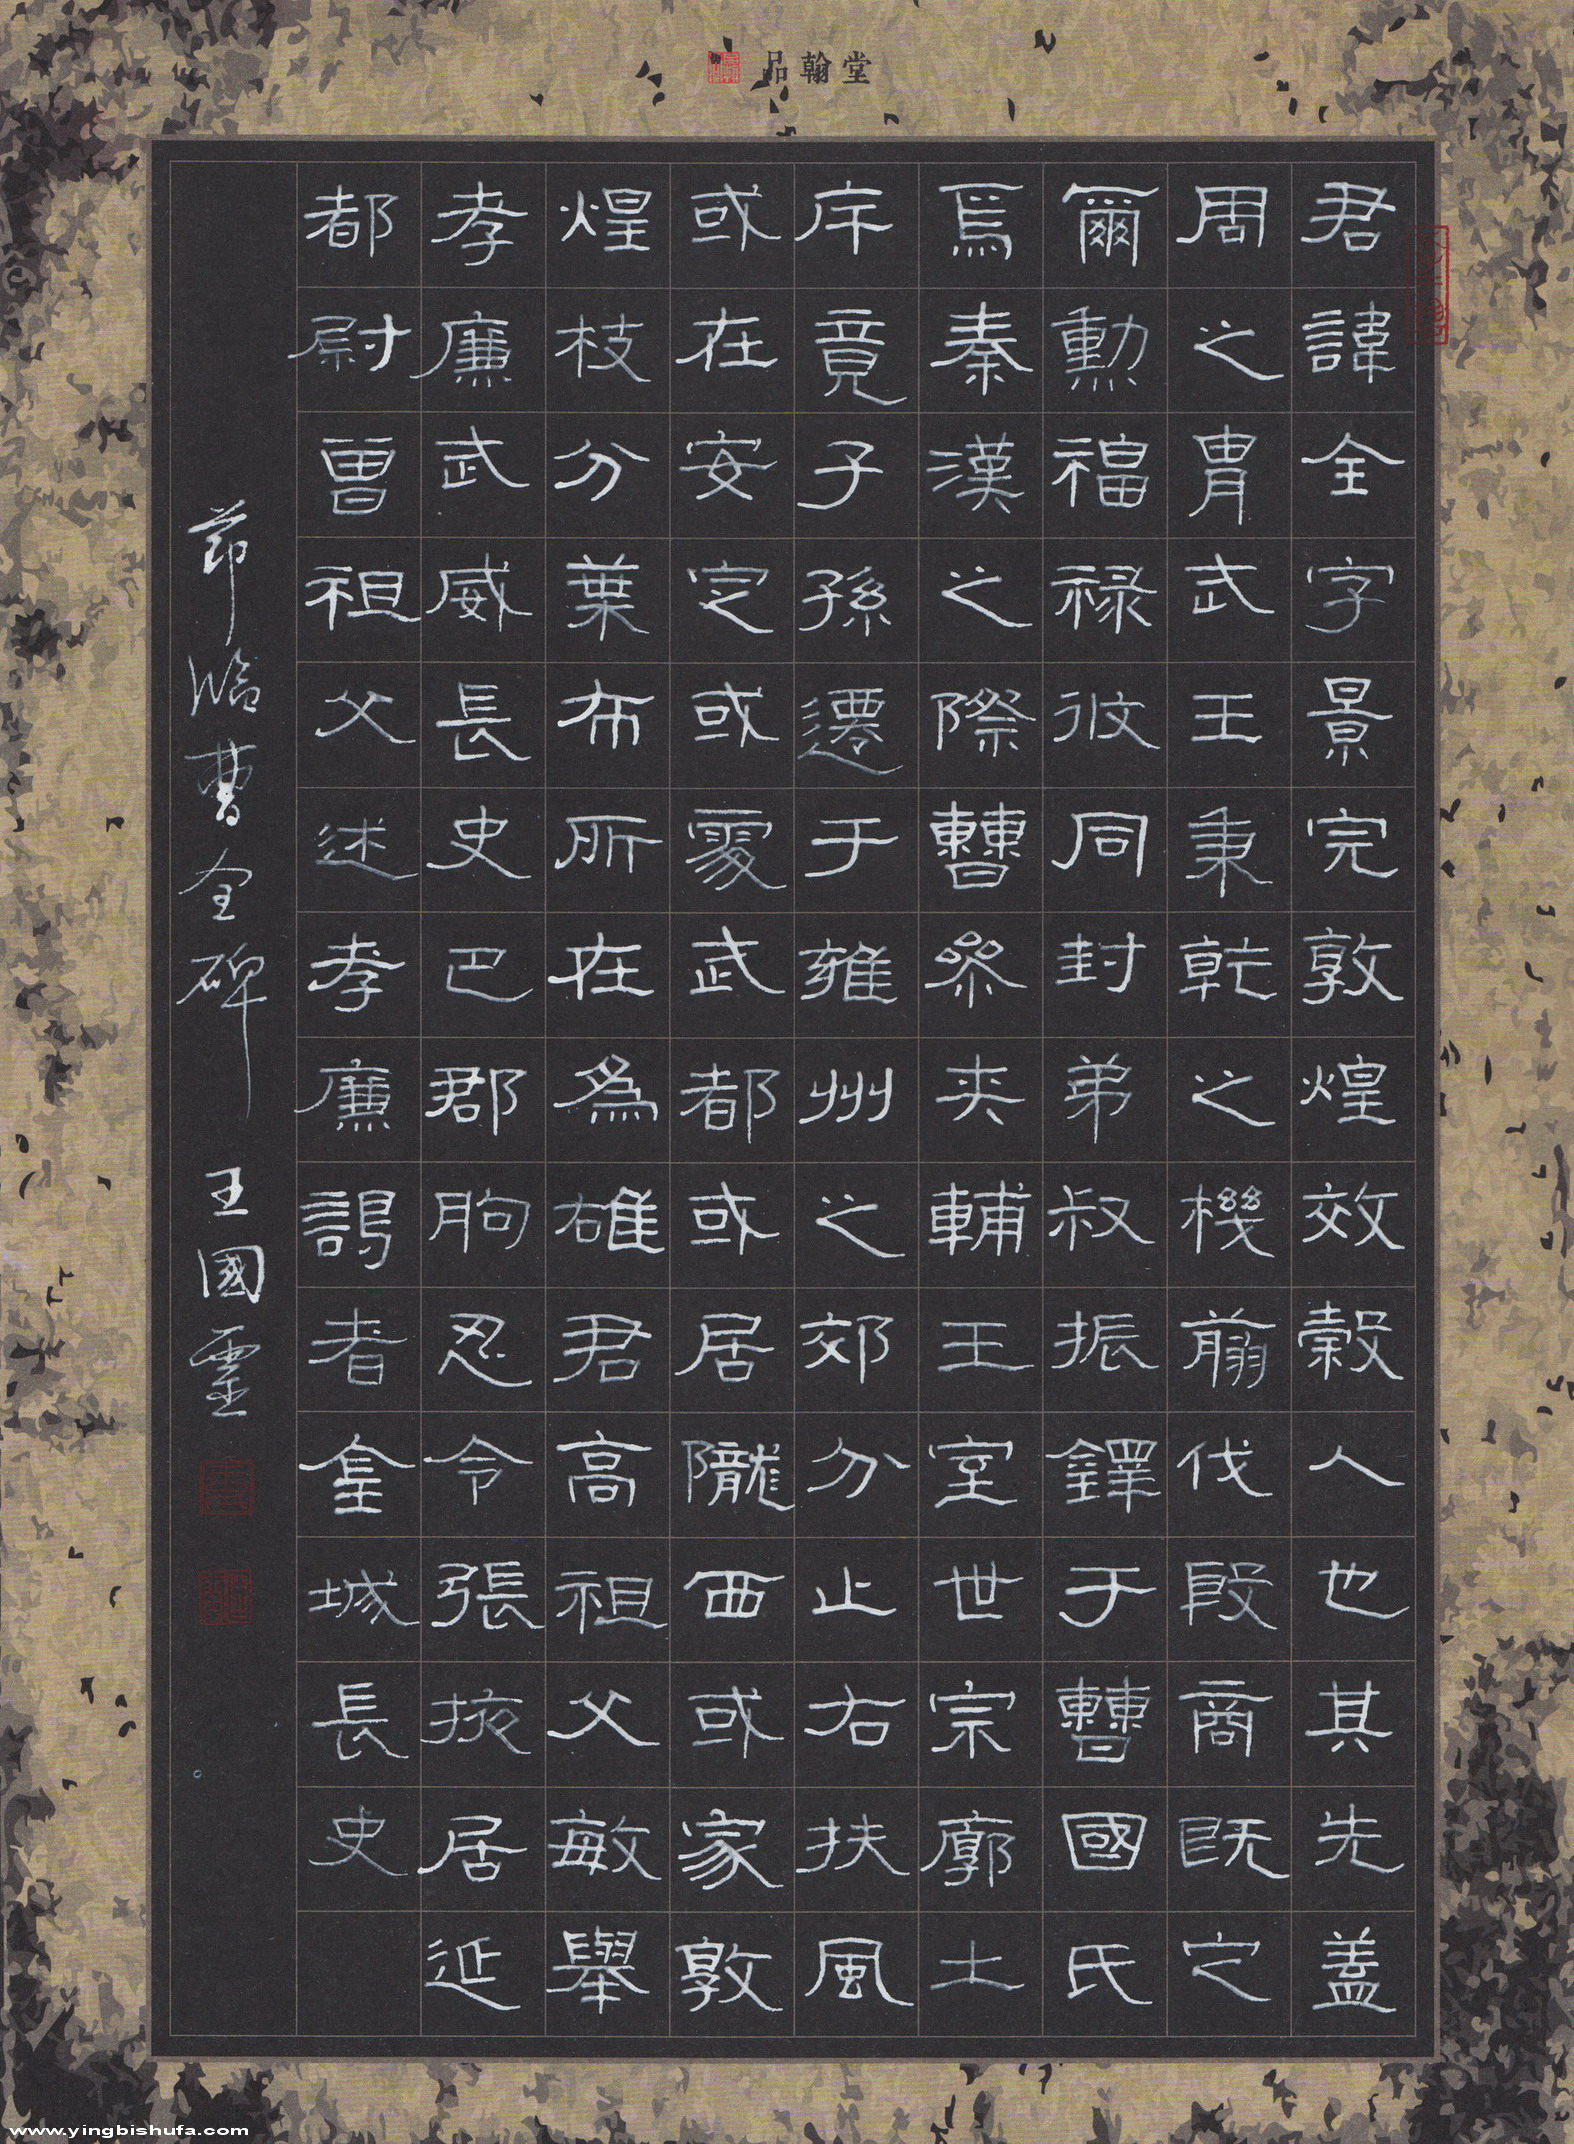 品翰堂
君諱全字景完敦煌效穀人也其先蓋
周之胄武王秉乾之機翦伐殷商既定
爾勳福祿攸同封弟叔振鐸于曹國氏
焉秦漢之際曹參夾輔王室世宗廓土
斥竟子孫遷于雍州之郊分止右扶風
或在安定或處武都或居隴西或家敦
煌枝分葉布所在為雄君高祖父敏舉
孝廉武威長史巴郡朐忍令張掖居延
都尉曾祖父述孝廉謁者金城長史
節臨曹全碑 王國靈
www.yingbishufa.com